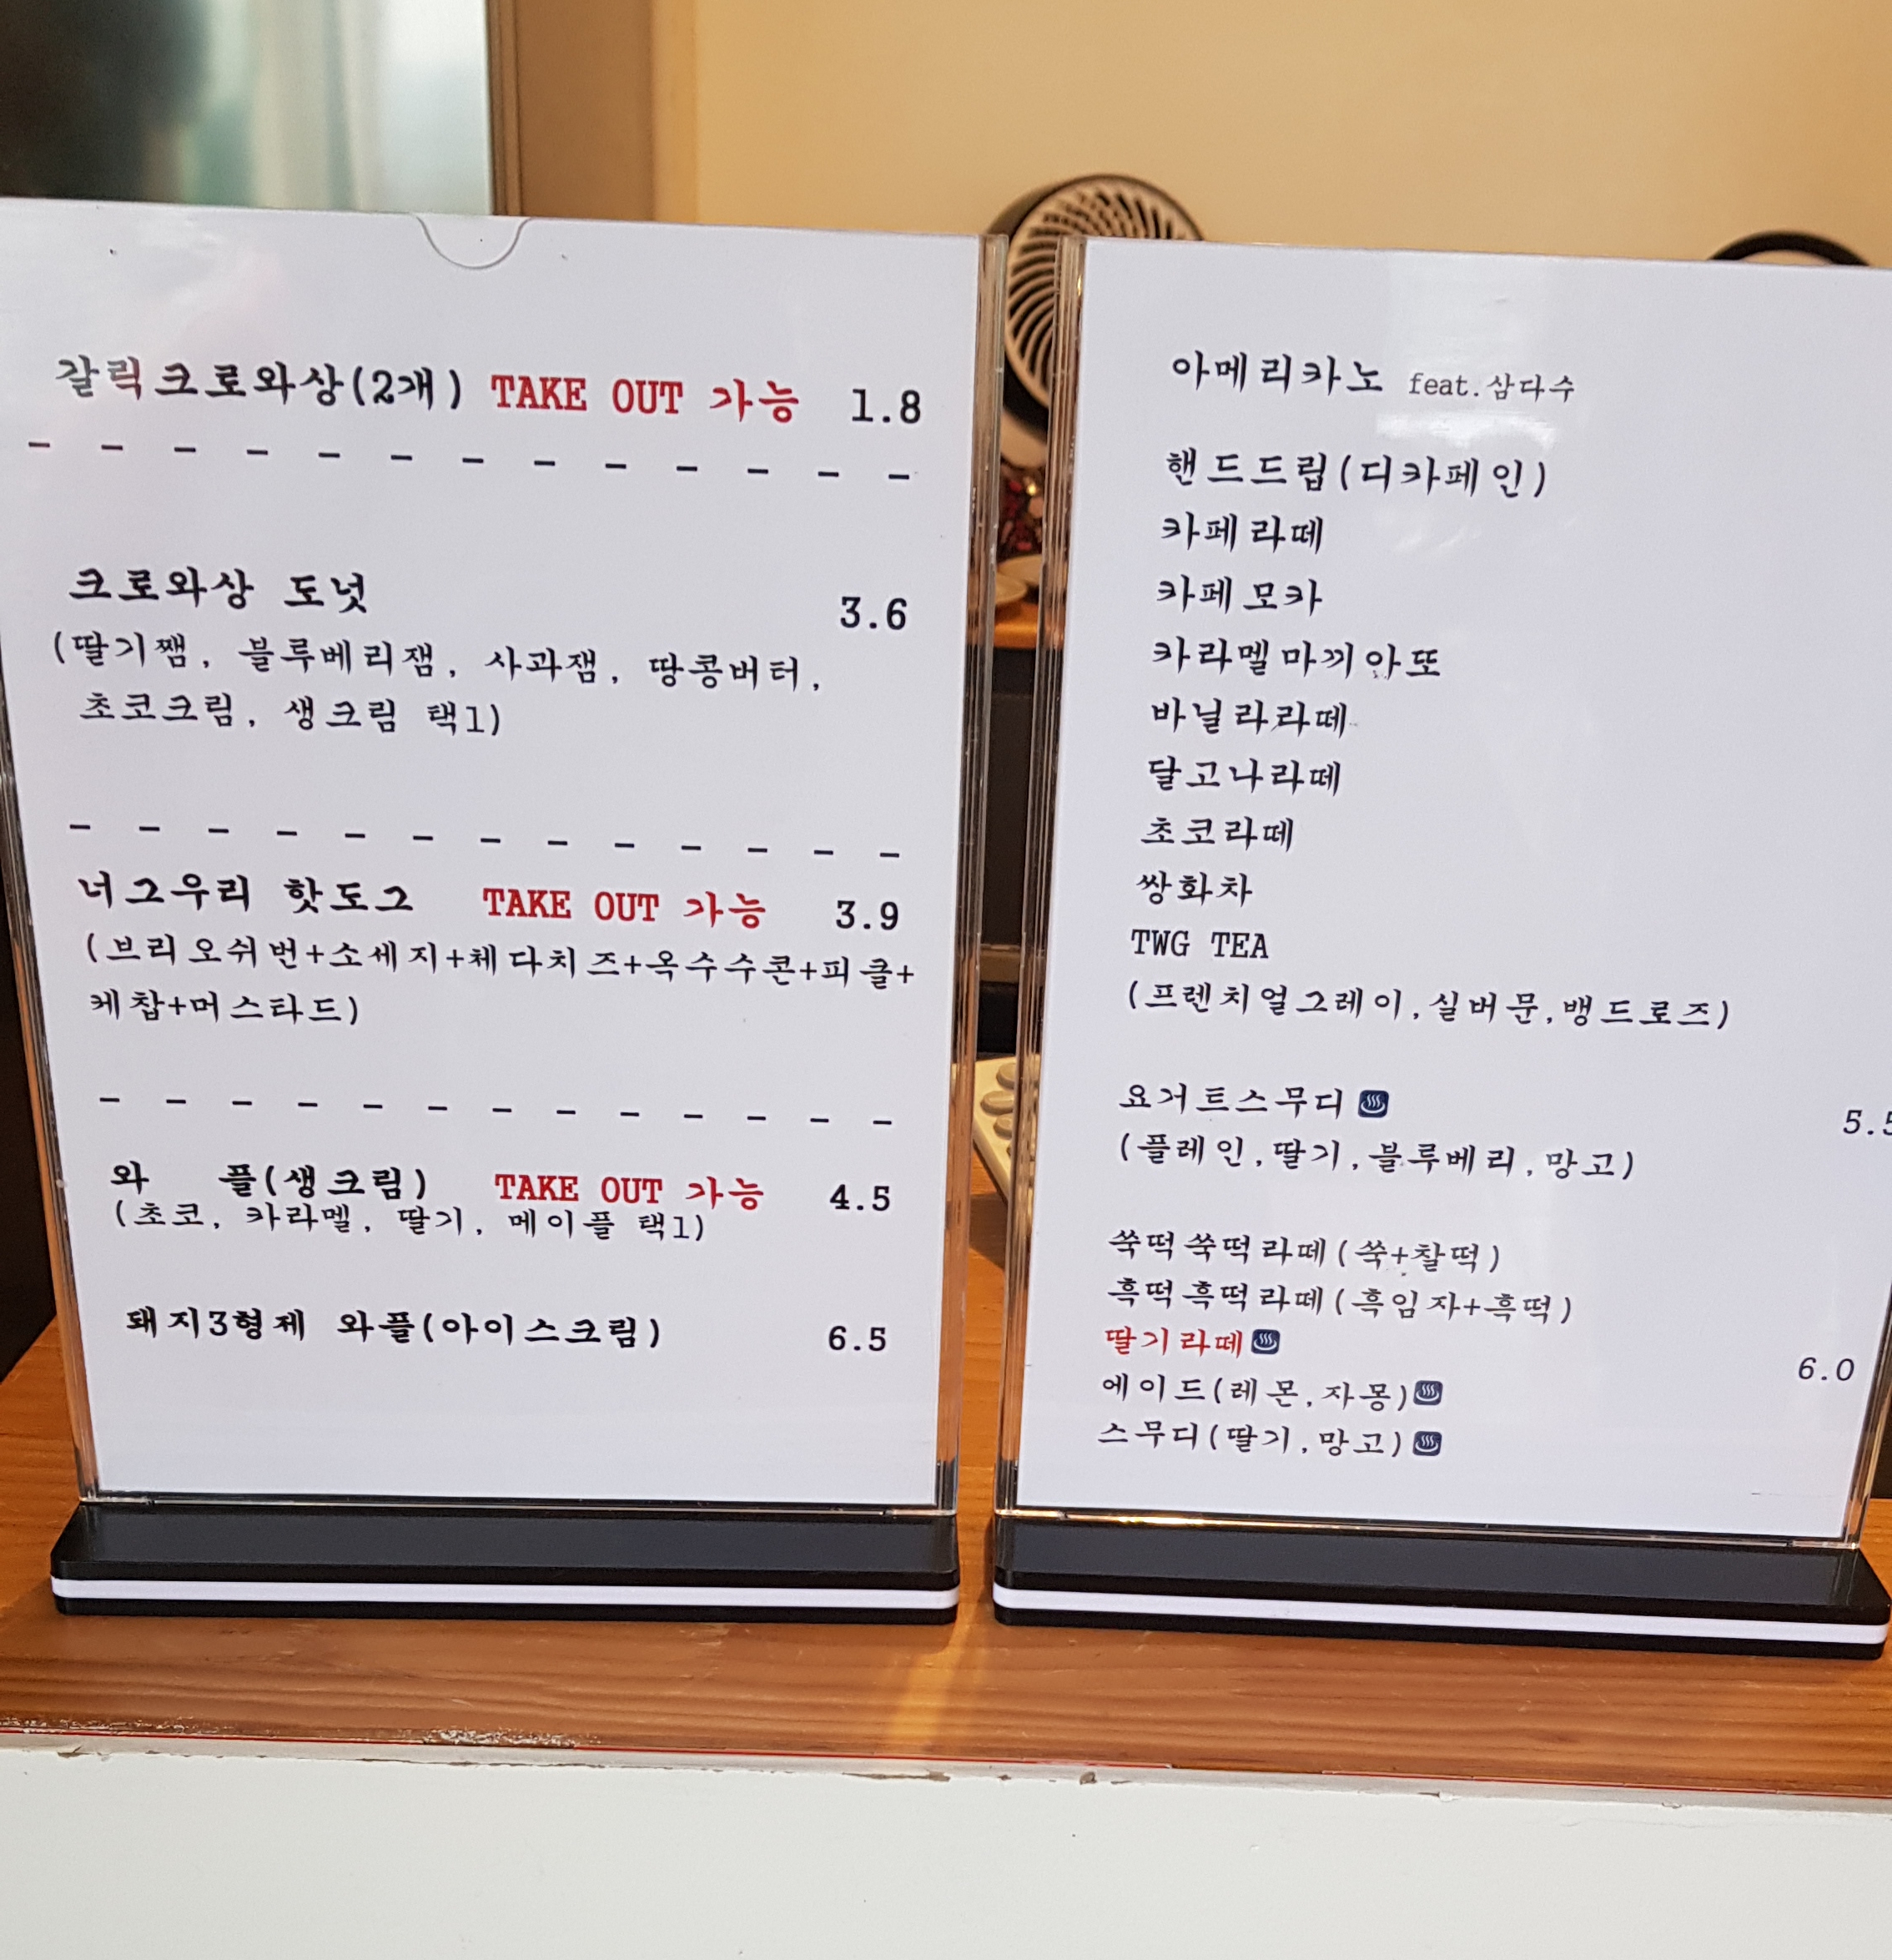 갈릭크로와상(2개) TAKE OUT 가능 1.8
크로와상 도넛 3.6
(딸기쨈, 블루베리잼, 사과잼, 땅콩버터,
초코크림, 생크림 택1)
너그우리 핫도그 TAKE OUT 가능 3.9
(브리오쉬번+소세지+체다치즈+옥수수콘+피클+
케찹+머스타드)
와 플(생크림) TAKE OUT 가능 4.5
(초코, 카라멜, 딸기, 메이플 택1)
돼지3형제 와플(아이스크림) 6.5
아메리카노 feat.삼다수
핸드드립(디카페인)
카페라떼
카페모카
카라멜마끼아또
바닐라라떼
달고나라떼
초코라떼
쌍화차
TWG TEA
(프렌치얼그레이,실버문,뱅드로즈)
요거트스무디♨ 5.5
(플레인,딸기,블루베리,망고)
쑥떡쑥떡라떼(쑥+찰떡)
흑떡흑떡라떼(흑임자+흑떡)
딸기라떼♨ 6.0
에이드(레몬,자몽)♨
스무디(딸기,망고)♨